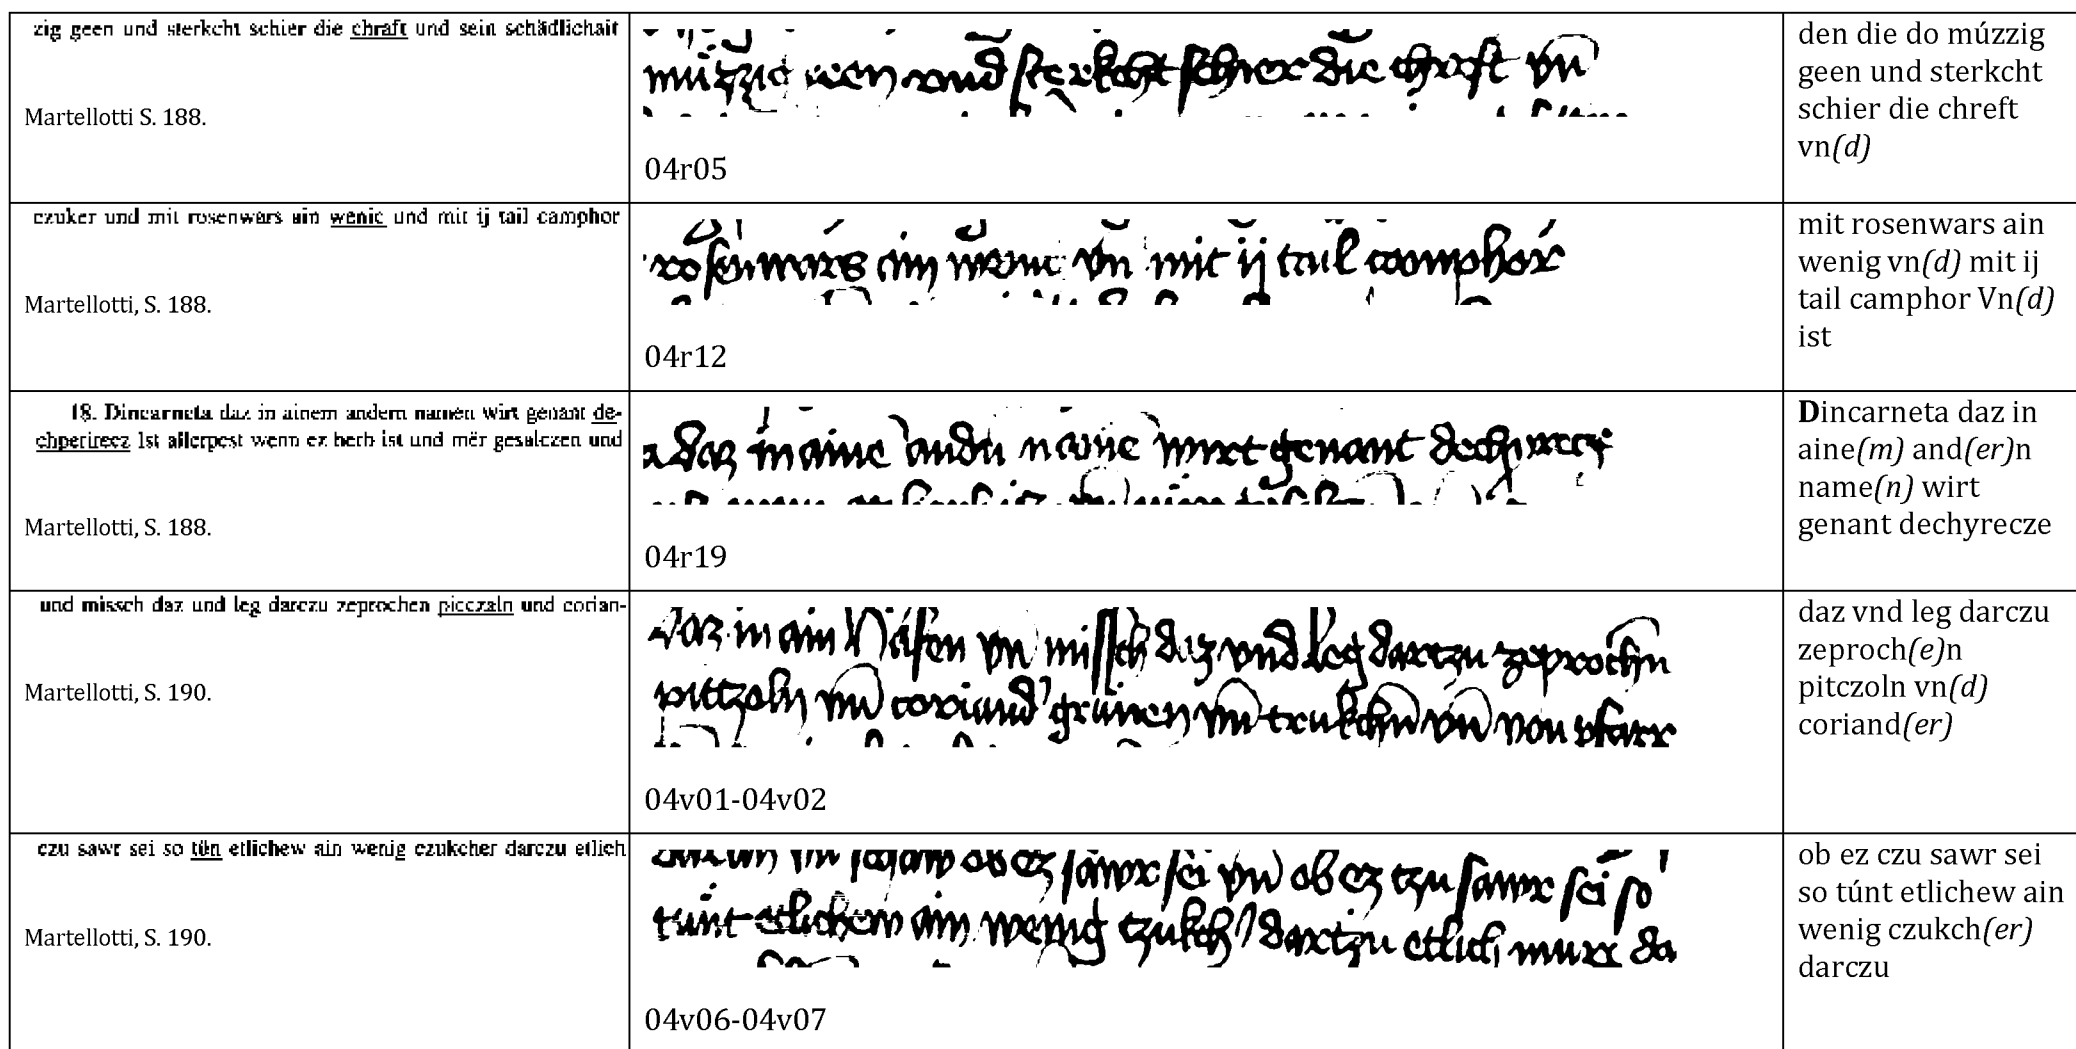 zig geen und sterkcht schier die chraft und sein schädlichait
Martellotti S. 188.
múzzig geen vnd sterkcht schier die chreft vn
04r05
den die do múzzig
geen und sterkcht
schier die chreft
vn(d)
czuker und mit rosenwars ain wenic und mit ij tail camphor
Martellotti, S. 188.
rosenwars ain wenig vn mit ij tail camphor
04r12
mit rosenwars ain
wenig vn(d) mit ij
tail camphor Vn(d)
ist
18. Dincarneta daz in ainem andern namen wirt genant de-
chperirecz Ist allerpest wenn ez herb ist und mër gesalczen und
Martellotti, S. 188.
a daz in aine andn name wirt genant
04r19
Dincarneta daz in
aine(m) and(er)n
name(n) wirt
genant dechyrecze
und missch daz und leg darczu zeprochen picczaln und corian-
Martellotti, S. 190.
daz in ain Häfen vn missch daz vnd leg darczu zeprochn
pitczoln vn coriand grünen vn trukchn vn von pfarr
04v01-04v02
daz vnd leg darczu
zeproch(e)n
pitczoln vn(d)
coriand(er)
czu sawr sei so tün etlichew ain wenig czukcher darczu etlich
Martellotti, S. 190.
ob ez sawr sei vn ob ez czu sawr sei so
túnt etlichew ain wenig czukch darczu etlich murr da
04v06-04v07
ob ez czu sawr sei
so túnt etlichew ain
wenig czukch(er)
darczu